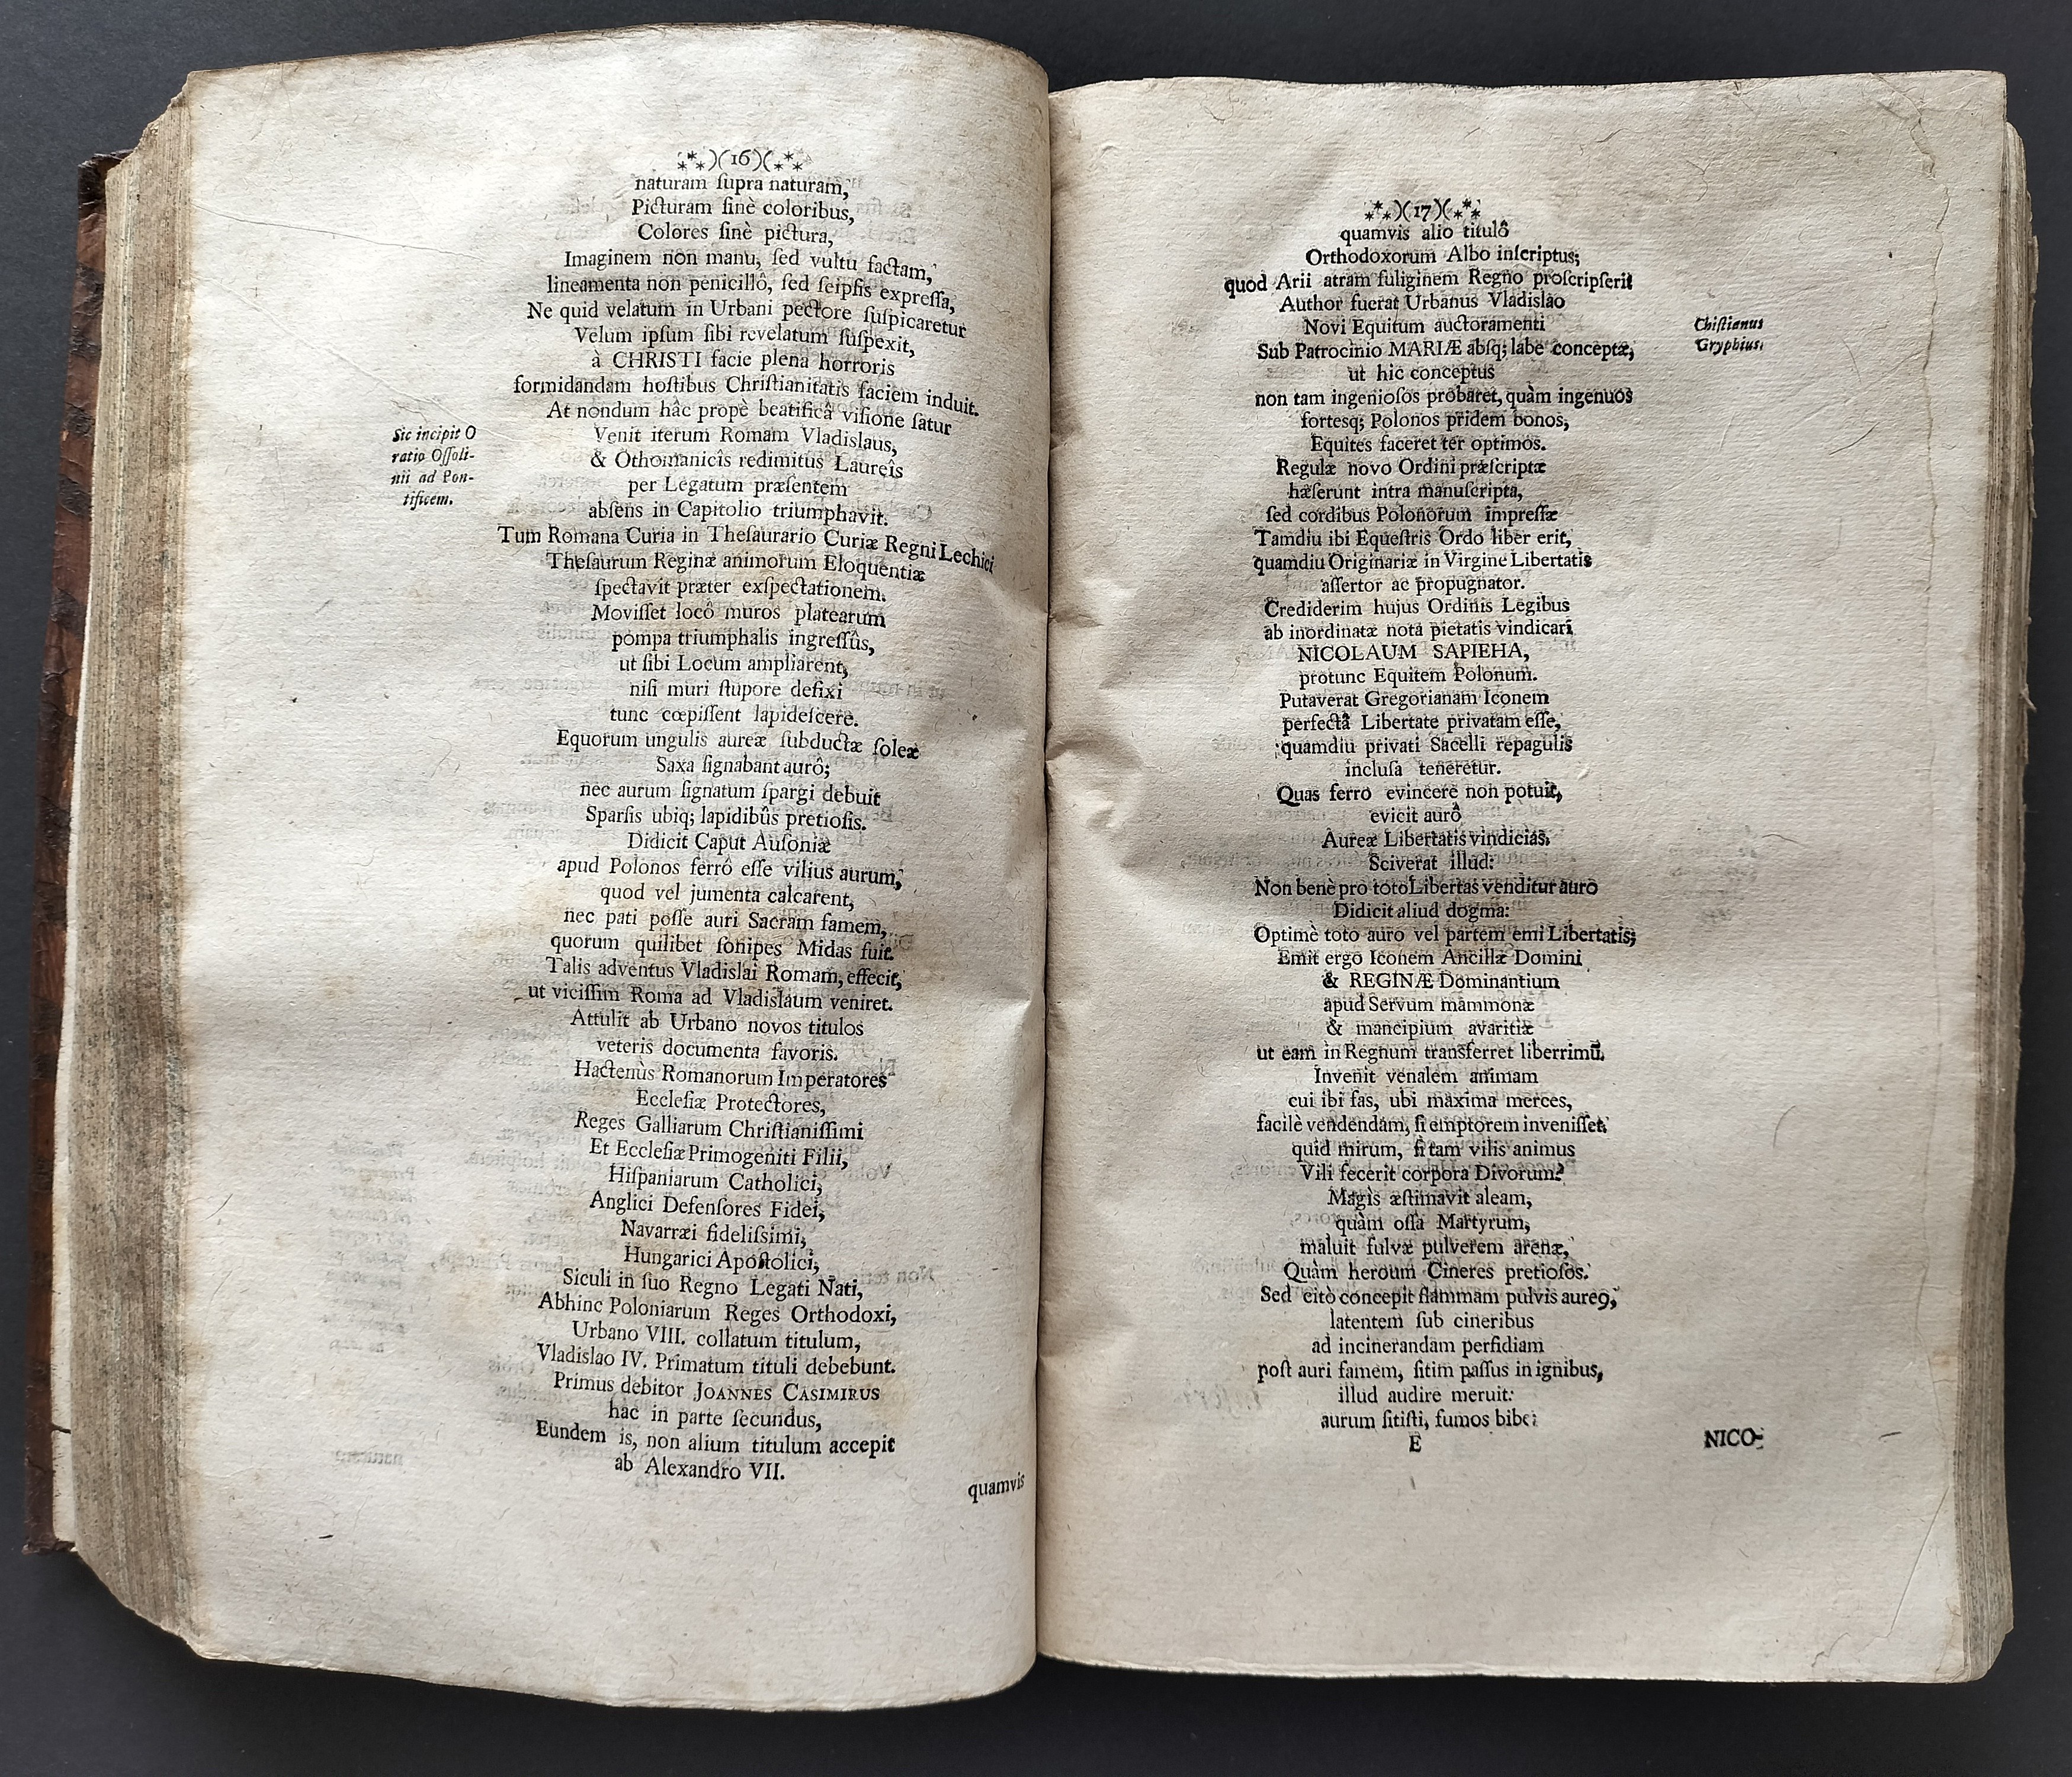 )(16)(
naturam ſupra naturam,
Picturam ſinè coloribus,
Colores ſinè pictura,
Imaginem non manu, ſed vultu factam,
lineamenta non penicillô, ſed ſeipſis expreſſa,
Ne quid velatum in Urbani pectore ſuſpicaretur
Velum ipſum ſibi revelatum ſuſpexit,
à CHRISTI facie plena horroris
formidandam hoſtibus Chriſtianitatis faciem induit.
At nondum hâc propè beatificâ viſione ſatur
Sic incipit O
ratio Oſſoli-
nii ad Pon-
tificem.
Venit iterum Romam Vladislaus,
& Othomanicîs redimitus Laureîs
per Legatum præſentem
abſens in Capitolio triumphavit.
Tum Romana Curia in Theſaurario Curiæ Regni Lechici
Theſaurum Reginæ animorum Eloquentiæ
ſpectavit præter exſpectationem.
Moviſſet locô muros platearum
pompa triumphalis ingreſſûs,
ut ſibi Locum ampliarent,
niſi muri ſtupore defixi
tunc cœpiſſent lapideſcere.
Equorum ungulis aureæ ſubductæ ſoleæ
Saxa ſignabant aurô;
nec aurum ſignatum ſpargi debuit
Sparſis ubiq; lapidibûs pretioſis.
Didicit Caput Auſoniæ
apud Polonos ferrô eſſe vilius aurum,
quod vel jumenta calcarent,
nec pati poſſe auri Sacram famem,
quorum quilibet ſonipes Midas fuit.
Talis adventus Vladislai Romam, effecit,
ut viciſſim Roma ad Vladislaum veniret.
Attulit ab Urbano novos titulos
veteris documenta favoris.
Hactenùs Romanorum Imperatores
Eccleſiæ Protectores,
Reges Galliarum Chriſtianiſſimi
Et Eccleſiæ Primogeniti Filii,
Hiſpaniarum Catholici,
Anglici Defenſores Fidei,
Navarræi fideliſsimi,
Hungarici Apoſtolici,
Siculi in ſuo Regno Legati Nati,
Abhinc Poloniarum Reges Orthodoxi,
Urbano VIII. collatum titulum,
Vladislao IV. Primatum tituli debebunt.
Primus debitor JOANNES CASIMIRUS
hac in parte ſecundus,
Eundem is, non alium titulum accepit
ab Alexandro VII.
quamvis
)(17)(
quamvis alio titulô
Orthodoxorum Albo inſcriptus;
quod Arii atram fuliginem Regno proſcripſerit
Author fuerat Urbanus Vladislao
Novi Equitum auctoramenti
Chiſtianus
Gryphius.
Sub Patrocinio MARIÆ abſq; labe conceptæ,
ut hic conceptus
non tam ingenioſos probaret, quàm ingenuos
fortesq; Polonos pridem bonos,
Equites faceret ter optimos.
Regulæ novo Ordini præſcriptæ
hæſerunt intra manuſcripta,
ſed cordibus Polonorum impreſſæ
Tamdiu ibi Equeſtris Ordo liber erit,
quamdiu Originariæ in Virgine Libertatis
aſſertor ac propugnator.
Crediderim hujus Ordinis Legibus
ab inordinatæ nota pietatis vindicari
NICOLAUM SAPIEHA,
protunc Equitem Polonum.
Putaverat Gregorianam Iconem
perfectâ Libertate privatam eſſe,
quamdiu privati Sacelli repagulis
incluſa teneretur.
Quas ferro evincere non potuit,
evicit aurô
Aureæ Libertatis vindicias.
Sciverat illud:
Non benè pro toto Libertas venditur auro
Didicit aliud dogma:
Optimè toto auro vel partem emi Libertatis;
Emit ergo Iconem Ancillæ Domini
& REGINÆ Dominantium
apud Servum mammonæ
& mancipium avaritiæ
ut eam in Regnum transferret liberrimū.
Invenit venalem animam
cui ibi fas, ubi maxima merces,
facilè vendendam, ſi emptorem inveniſſet.
quid mirum, ſi tam vilis animus
Vili fecerit corpora Divorum?
Magìs æſtimavit aleam,
quàm oſſa Martyrum,
maluit fulvæ pulverem arenæ,
Quàm heroum Cineres pretioſos.
Sed citò concepit flammam pulvis aureꝰ,
latentem ſub cineribus
ad incinerandam perfidiam
poſt auri famem, ſitim paſſus in ignibus,
illud audire meruit:
aurum ſitiſti, fumos bibe:
E
NICO-